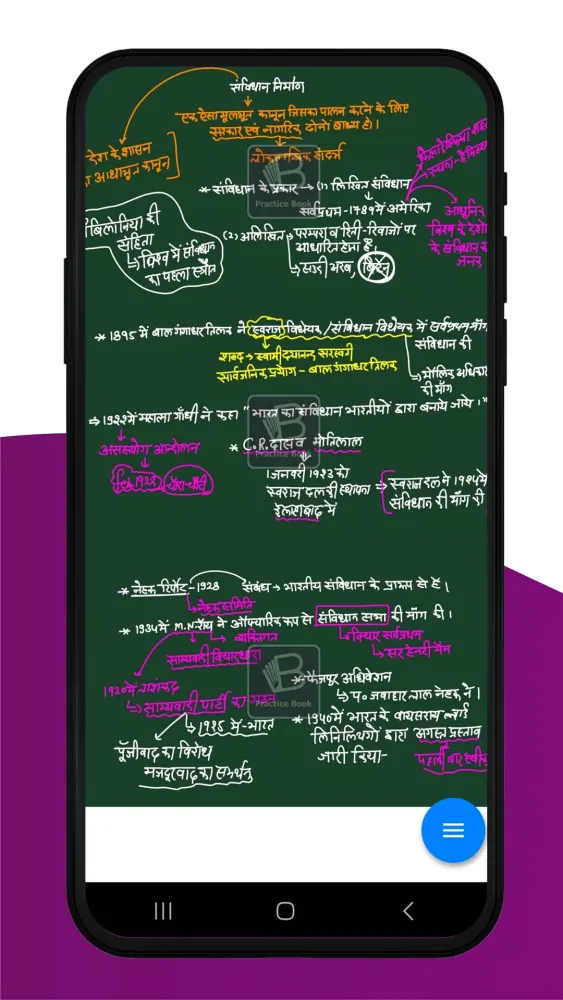 संविधान निर्माण
एक ऐसा मूलभूत कानून जिसका पालन करने के लिए
सरकार एवं नागरिक दोनों बाध्य हो।
देश के शासन
आधारभूत कानून
लोकतान्त्रिक
* संविधान के प्रकार → (1) लिखित संविधान
सर्वप्रथम - 1789 में अमेरिका
बिलोनिया की
संहिता
→ विश्व में संविधान
का पहला स्त्रोत
(2) अलिखित → परम्परा व रिती-रिवाजों पर
आधारित होता है।
→ सऊदी अरब, ब्रिटेन
आधुनिक
विश्व के देशों
के संविधान का
जनक
Practice Book
* 1895 में बाल गंगाधर तिलक ने स्वराज विधेयक/संविधान विधेयक में सर्वप्रथम
संविधान की
शब्द → स्वामी दयानन्द सरस्वती
सार्वजनिक प्रयोग - बाल गंगाधर तिलक
→ मौलिक अधिकार
की माँग
⇒ 1922 में महात्मा गाँधी ने कहा "भारत का संविधान भारतीयों द्वारा बनाये जाये।"
असहयोग आन्दोलन
* C.R.दास व मोतिलाल
Practice Book
1 जनवरी 1923 को
स्वराज दल की स्थापना ⇒ स्वराज दल ने 1924 में
इलाहाबाद में
संविधान की माँग की
* नेहरू रिर्पोट - 1928 संबंध → भारतीय संविधान के प्रारूप से है।
→ नेहरू समिति
* 1934 में M.N.रॉय ने औपचारिक रूप से संविधान सभा की माँग की।
→ व्यक्तिगत
→ विचार सर्वप्रथम
साम्यवादी विचारधारा
→ सर हेनरी मैन
1920 में ताशकंद
→ साम्यवादी पार्टी का गठन
* फैजपुर अधिवेशन
Practice Book
→ प० जवाहार लाल नेहरू ने।
→ 1925 में - भारत
* 1940 में भारत के वायसराय लार्ड
पूँजीवाद का विरोध
लिनलिथगो द्वारा अगस्त प्रस्ताव
मजदूरवाद का समर्थन
जारी किया-
पहली बार